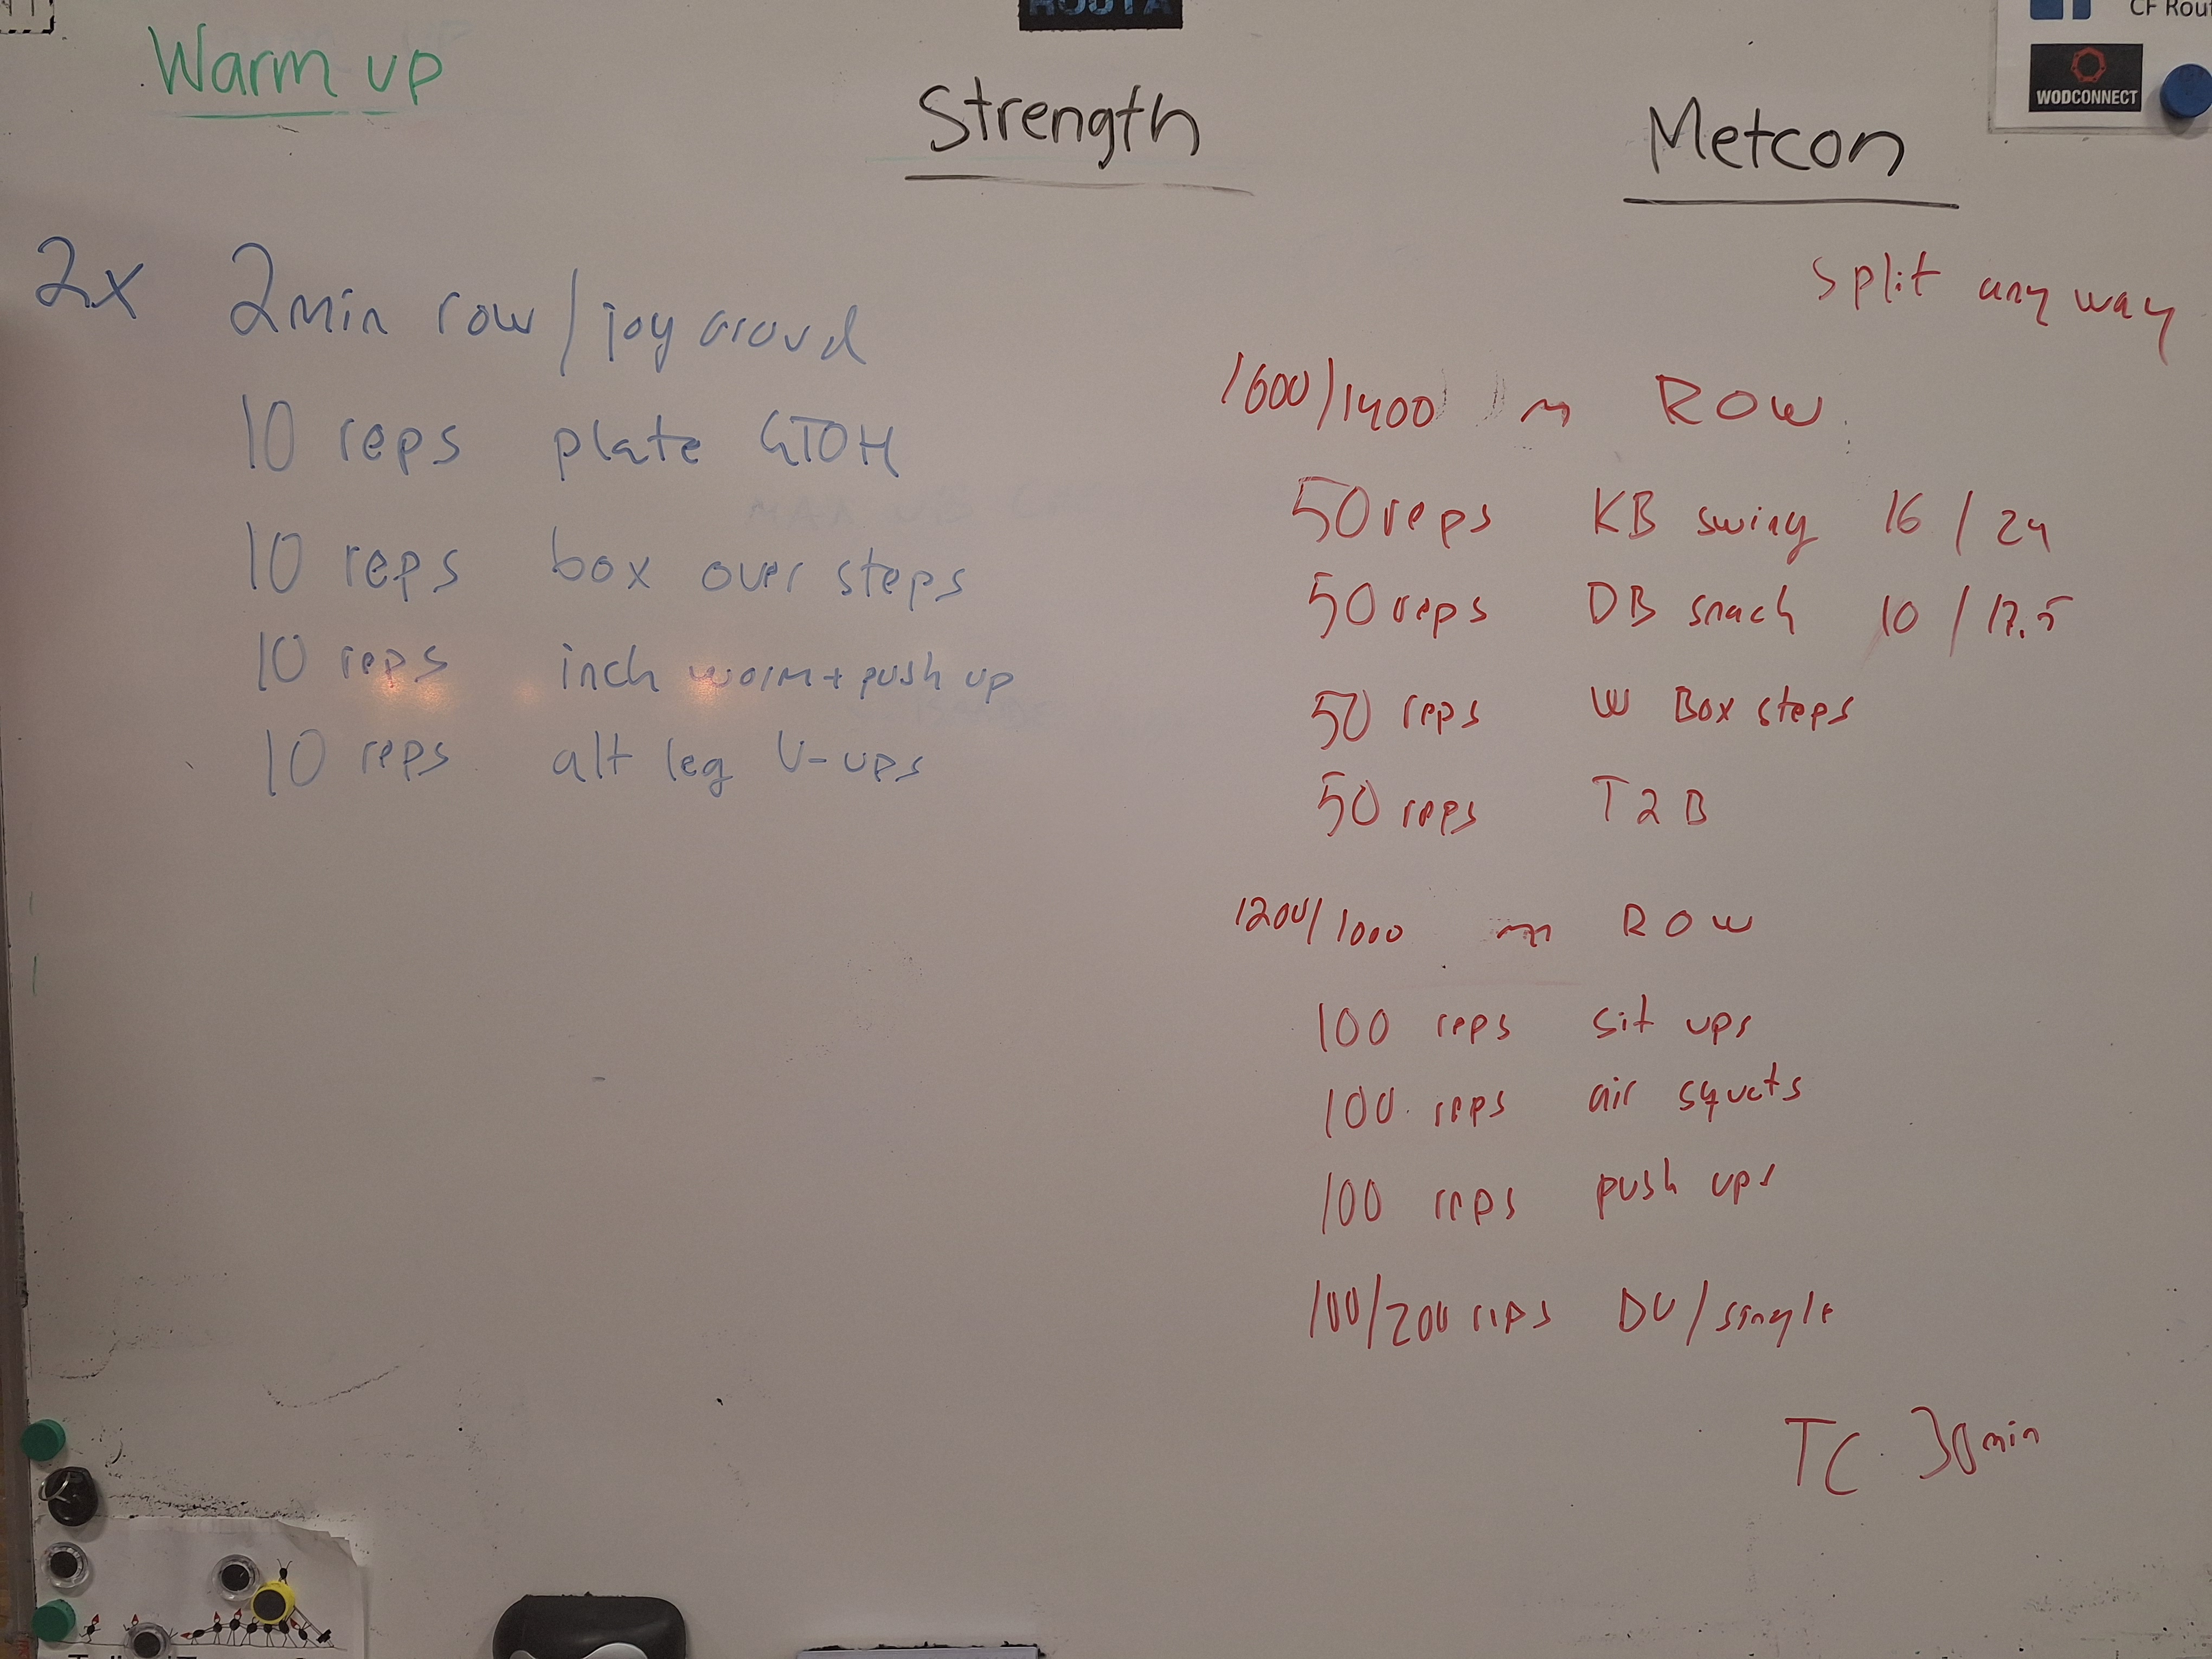 ROUTA
CF Rout
WODCONNECT
Warm up
2x 2min row / joy aroud
10 reps plate GTOH
10 reps box over steps
10 reps inch worm + push up
10 reps alt leg V-ups
Strength
Metcon
split any way
1600/1400 m ROW
50 reps KB swing 16 / 24
50 reps DB snach 10 / 17.5
50 reps W Box steps
50 reps T2B
1200/1000 m ROW
100 reps sit ups
100 reps air squats
100 reps push ups
100/200 reps DU / single
TC 30min